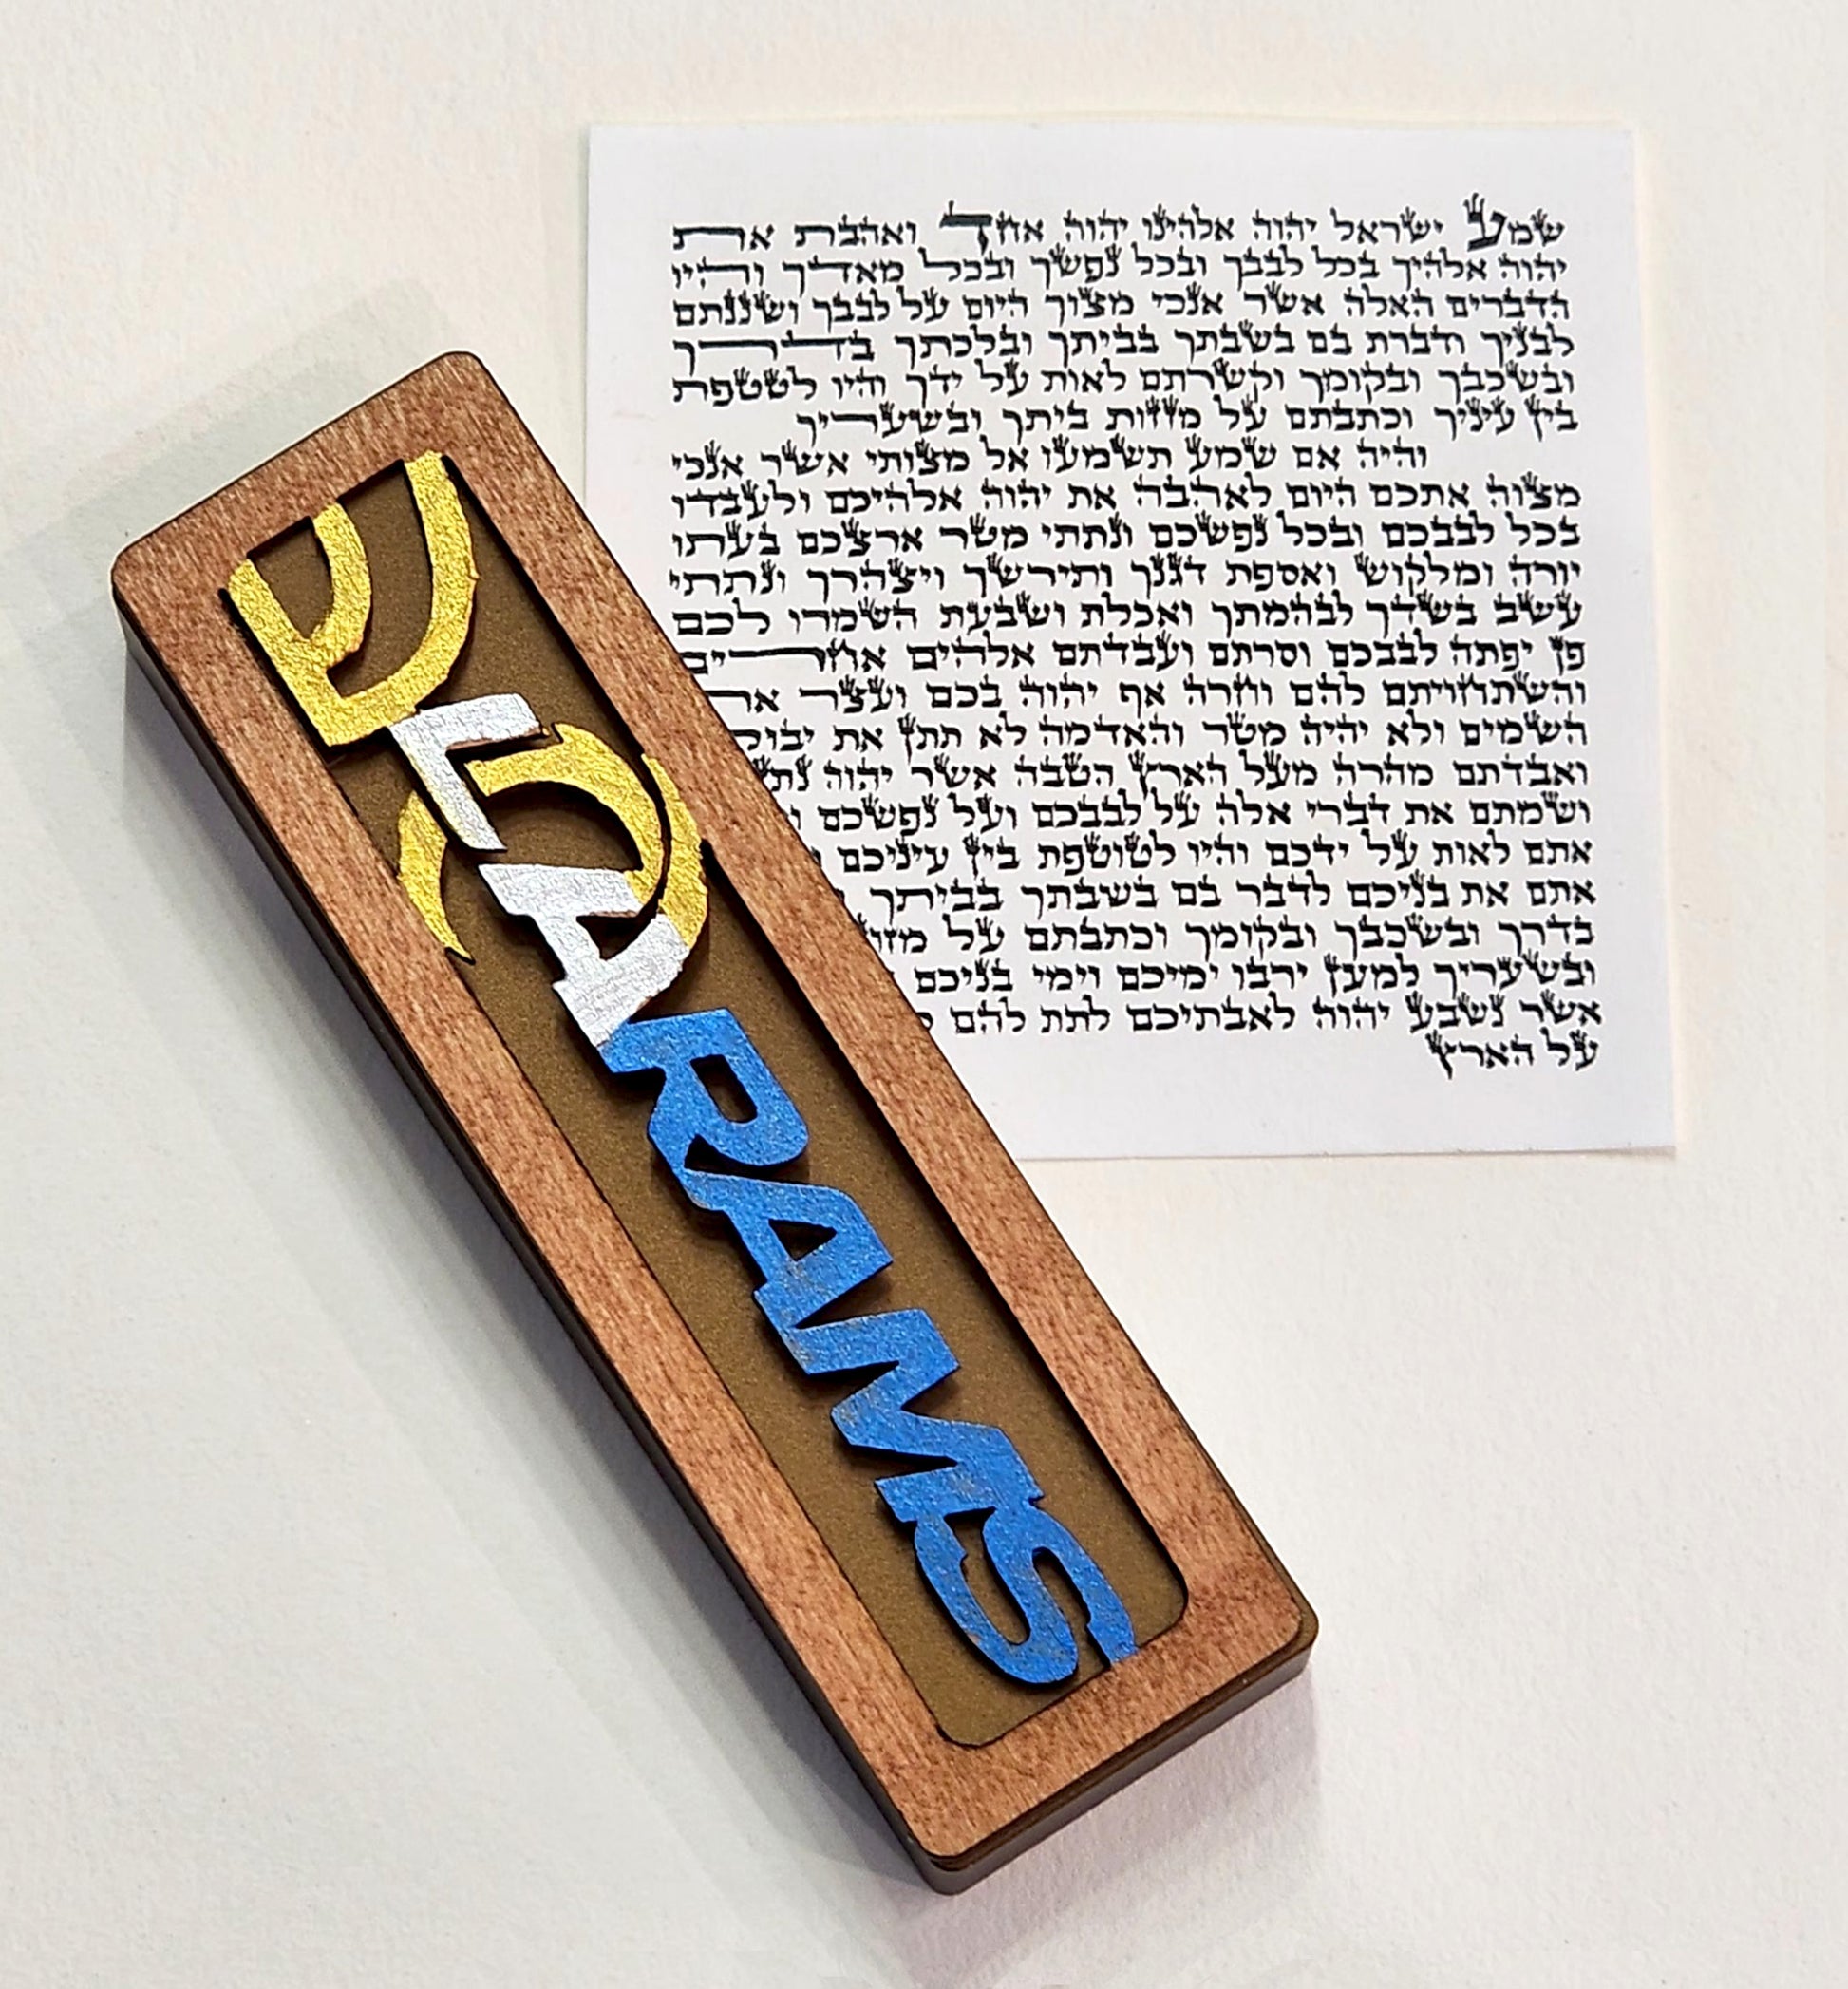 שמע ישראל יהוה אלהינו יהוה אחד ואהבת את
יהוה אלהיך בכל לבבך ובכל נפשך ובכל מאדך והיו
הדברים האלה אשר אנכי מצוך היום על לבבך ושננתם
לבניך ודברת בם בשבתך בביתך ובלכתך בדרך
ובשכבך ובקומך וקשרתם לאות על ידך והיו לטטפת
בין עיניך וכתבתם על מזזות ביתך ובשעריך
והיה אם שמע תשמעו אל מצותי אשר אנכי
מצוה אתכם היום לאהבה את יהוה אלהיכם ולעבדו
בכל לבבכם ובכל נפשכם ונתתי מטר ארצכם בעתו
יורה ומלקוש ואספת דגנך ותירשך ויצהרך ונתתי
עשב בשדך לבהמתך ואכלת ושבעת השמרו לכם
פן יפתה לבבכם וסרתם ועבדתם אלהים אחרים
והשתחויתם להם וחרה אף יהוה בכם ועצר
השמים ולא יהיה מטר והאדמה לא תתן את
ואבדתם מהרה מעל הארץ הטבה אשר יהוה
ושמתם את דברי אלה על לבבכם ועל נפשכם
אתם לאות על ידכם והיו לטוטפת בין עיניכם
אתם את בניכם לדבר בם בשבתך בביתך
בדרך ובשכבך ובקומך וכתבתם על
ובשעריך למען ירבו ימיכם וימי בניכם
אשר נשבע יהוה לאבתיכם לתת להם
על הארץ
ש
LA RAMS